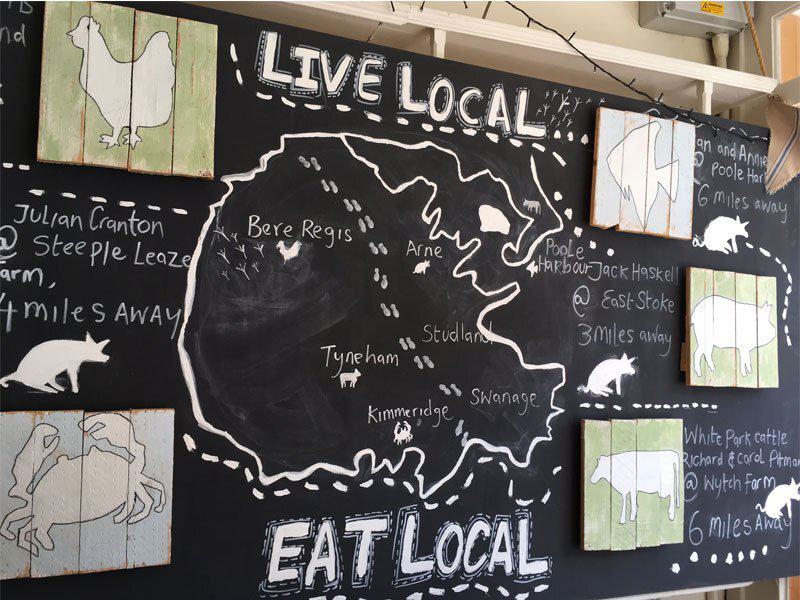 LIVE LOCAL
Julian Cranton
@ Steeple Leaze
Farm,
4 miles AWAY
Bere Regis
Arne
Poole
Harbour
Studland
Tyneham
Swanage
Kimmeridge
an and Annie
@ Poole Har
6 miles away
Jack Haskell
@ East Stoke
3 miles away
White Park cattle
Richard & Carol
@ Wytch Farm
6 miles Away
EAT LOCAL